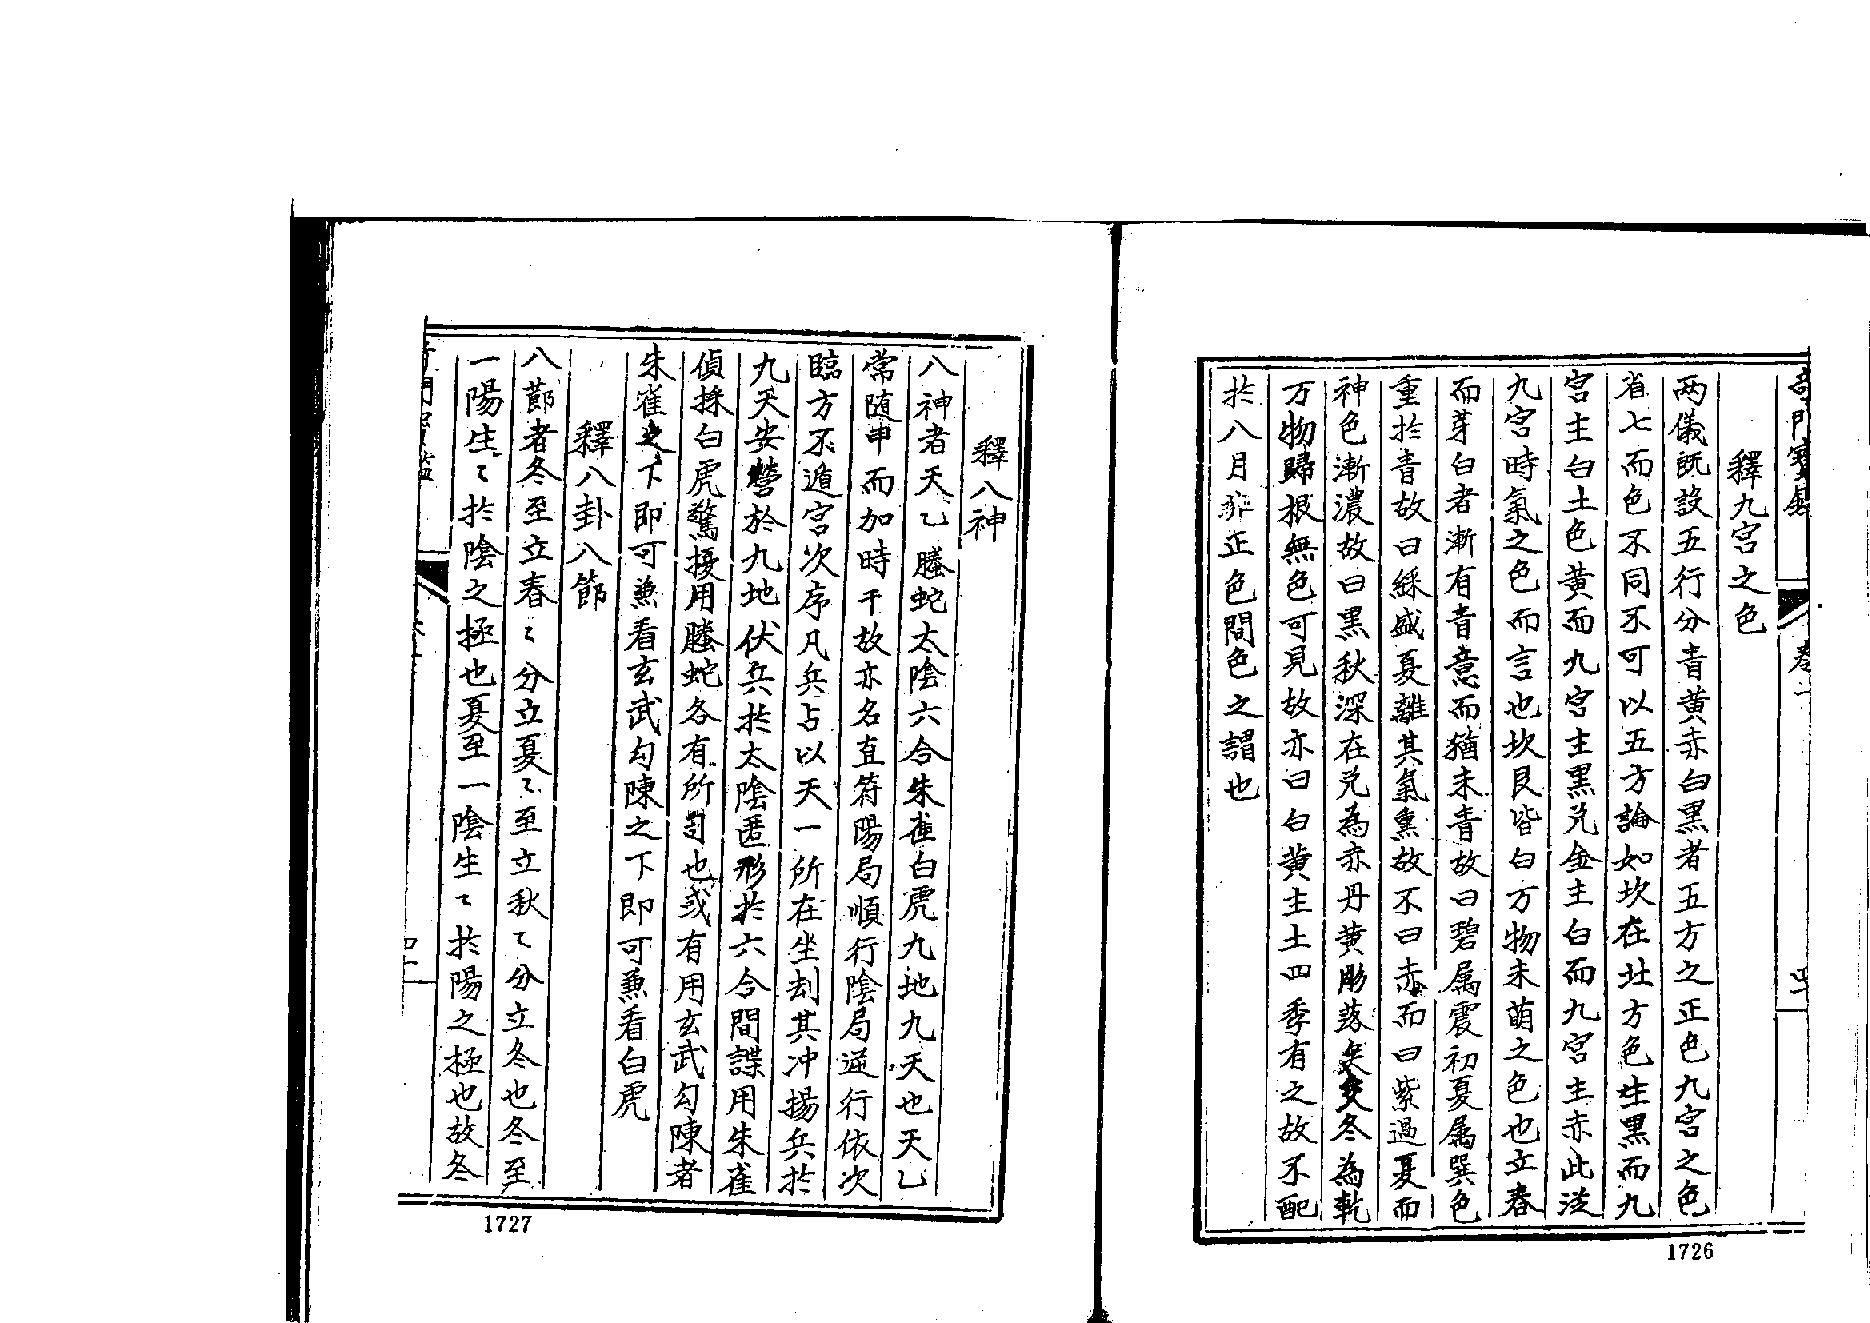 奇門寶鑑
卷二
釋九宮之色
两儀既設五行分青黃赤白黑者五方之正色九宮之色
省七而色不同不可以五方論如坎在北方色生黑而九
宮主白土色黃而九宮主黑兑金主白而九宮主赤此泛
九宮時氣之色而言也坎艮皆白万物未萌之色也立春
而芽白者漸有青意而猶未青故曰碧属震初夏属巽色
重於青故曰綠盛夏離其氣熏故不曰赤而曰紫過夏而
神色漸濃故曰黑秋深在兑為赤丹黃彫落矣交冬為乾
万物歸根無色可見故亦曰白黃主土四季有之故不配
於八月非正色間色之謂也
1726
釋八神
八神者天乙螣蛇太陰六合朱雀白虎九地九天也天乙
常随甲而加時干故亦名直符陽局順行陰局逆行依次
臨方不遁宮次序凡兵占以天一所在坐刦其冲揚兵於
九天安營於九地伏兵於太陰匿形於六合間諜用朱雀
偵探白虎驚擾用螣蛇各有所司也或有用玄武勾陳者
朱雀之下即可兼看玄武勾陳之下即可兼看白虎
釋八卦八節
八節者冬至立春〻分立夏〻至立秋〻分立冬也冬至
一陽生〻於陰之極也夏至一陰生〻於陽之極也故冬
1727